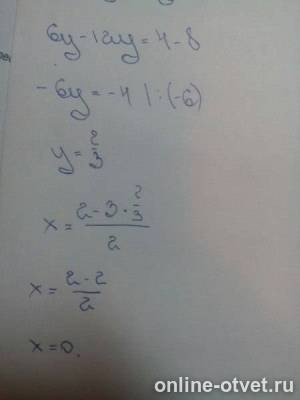 6y - 12y = 4 - 8
-6y = -4 | : (-6)
y = 2/3
x = (2 - 3 · 2/3)/2
x = (2 - 2)/2
x = 0.
online-otvet.ru